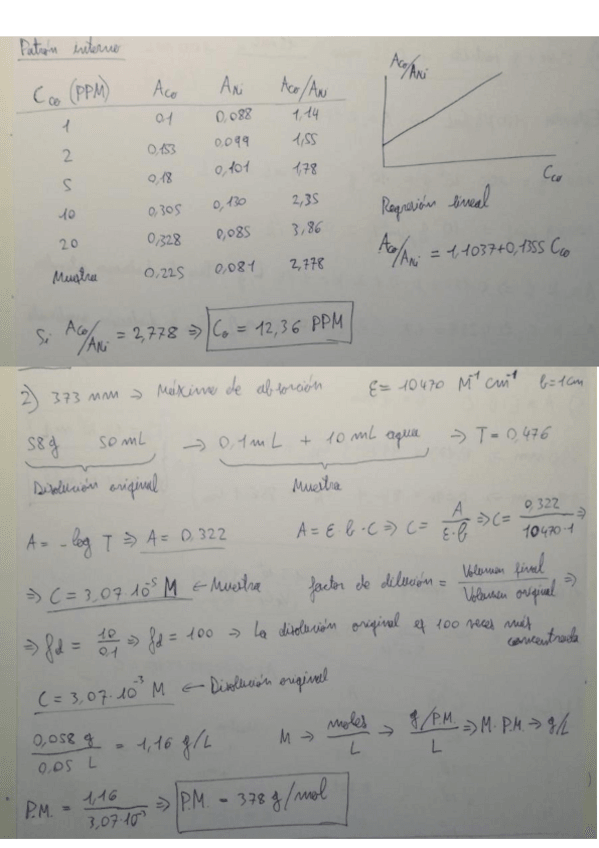 Patrón interno
C Co (PPM) A Co A Ni A Co/A Ni
1 0,1 0,088 1,14
2 0,153 0,099 1,55
5 0,18 0,101 1,78
10 0,305 0,130 2,35
20 0,328 0,085 3,86
Muestra 0,225 0,081 2,778
A Co/A Ni
C Co
Regresión lineal
A Co/A Ni = 1,1037+0,1355 C Co
Si A Co/A Ni = 2,778 ⇒ C Co = 12,36 PPM
2) 373 nm → Máximo de absorción ε = 10470 M⁻¹ cm⁻¹ b = 1cm
58g 50 mL → 0,1 mL + 10 mL agua → T = 0,476
Disolución original Muestra
A = -log T ⇒ A = 0.322 A = ε · b · C ⇒ C = A/ε·b ⇒ C = 0,322/10470·1 ⇒
⇒ C = 3,07·10⁻⁵ M ← Muestra factor de dilución = Volumen final/Volumen original ⇒
⇒ fd = 10/0,1 ⇒ fd = 100 → La disolución original es 100 veces más concentrada
C = 3,07·10⁻³ M ← Disolución original
0,058 g/0,05 L = 1,16 g/L M → moles/L → g/P.M./L ⇒ M · P.M. ⇒ g/L
P.M. = 1,16/3,07·10⁻³ ⇒ P.M. = 378 g/mol